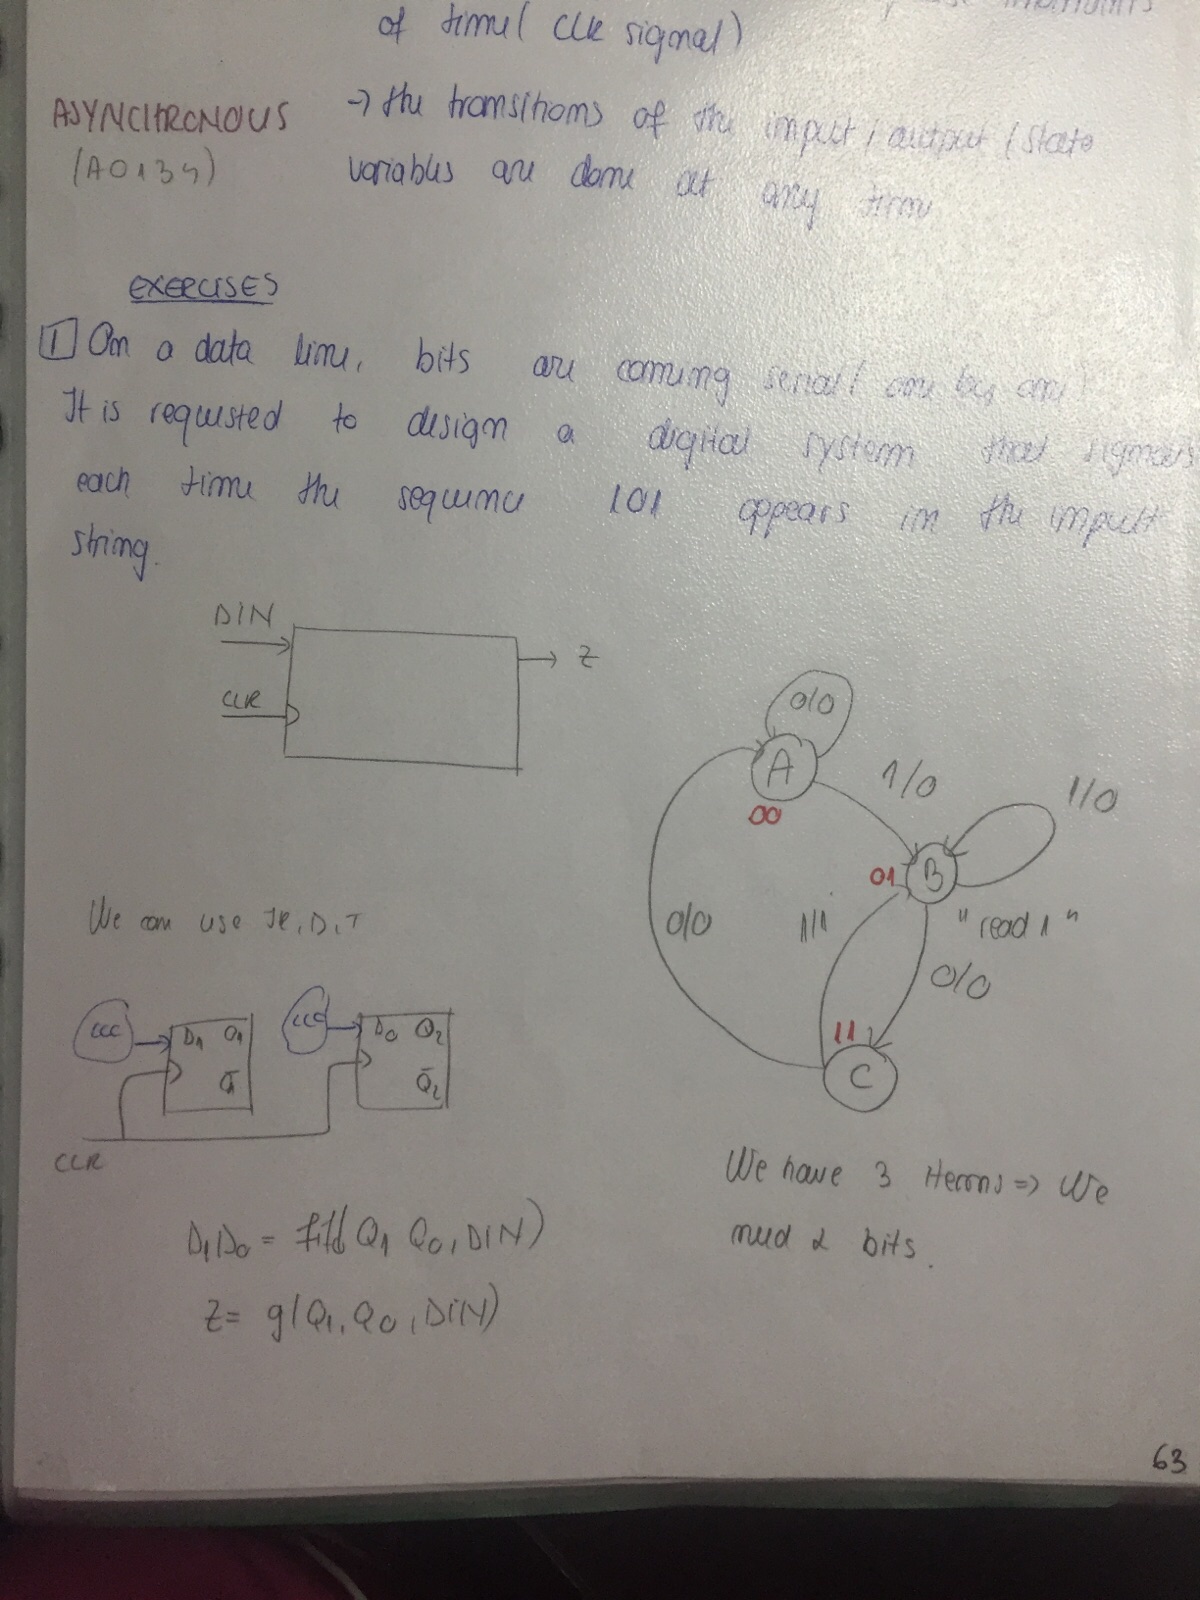 of time ( CLK signal)
ASYNCHRONOUS
(A0134)
→ the transitions of the input / output / state
variables are done at any time
EXERCISES
1 On a data line, bits are coming serial ( one by one)
It is requested to design a digital system that signals
each time the sequence 101 appears in the input
string.
DIN
CLK
Z
0/0
A
00
1/0
1/0
01
B
"read 1"
0/0
1/1
0/0
11
C
We can use JK, D, T
CLC
D1 Q1
Q̄1
CLC
D0 Q2
Q̄2
CLK
We have 3 => We
need 2 bits.
D1D0 = Q1 Q0, DIN)
Z= g(Q1, Q0, DIN)
63